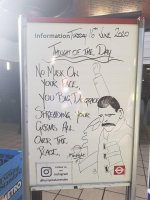 Information Tuesday 16th June 2020
Thought of the Day
No Mask On
Your Face,
You Big Disgrace
Spreading Your
Germs All
Over the
Place.